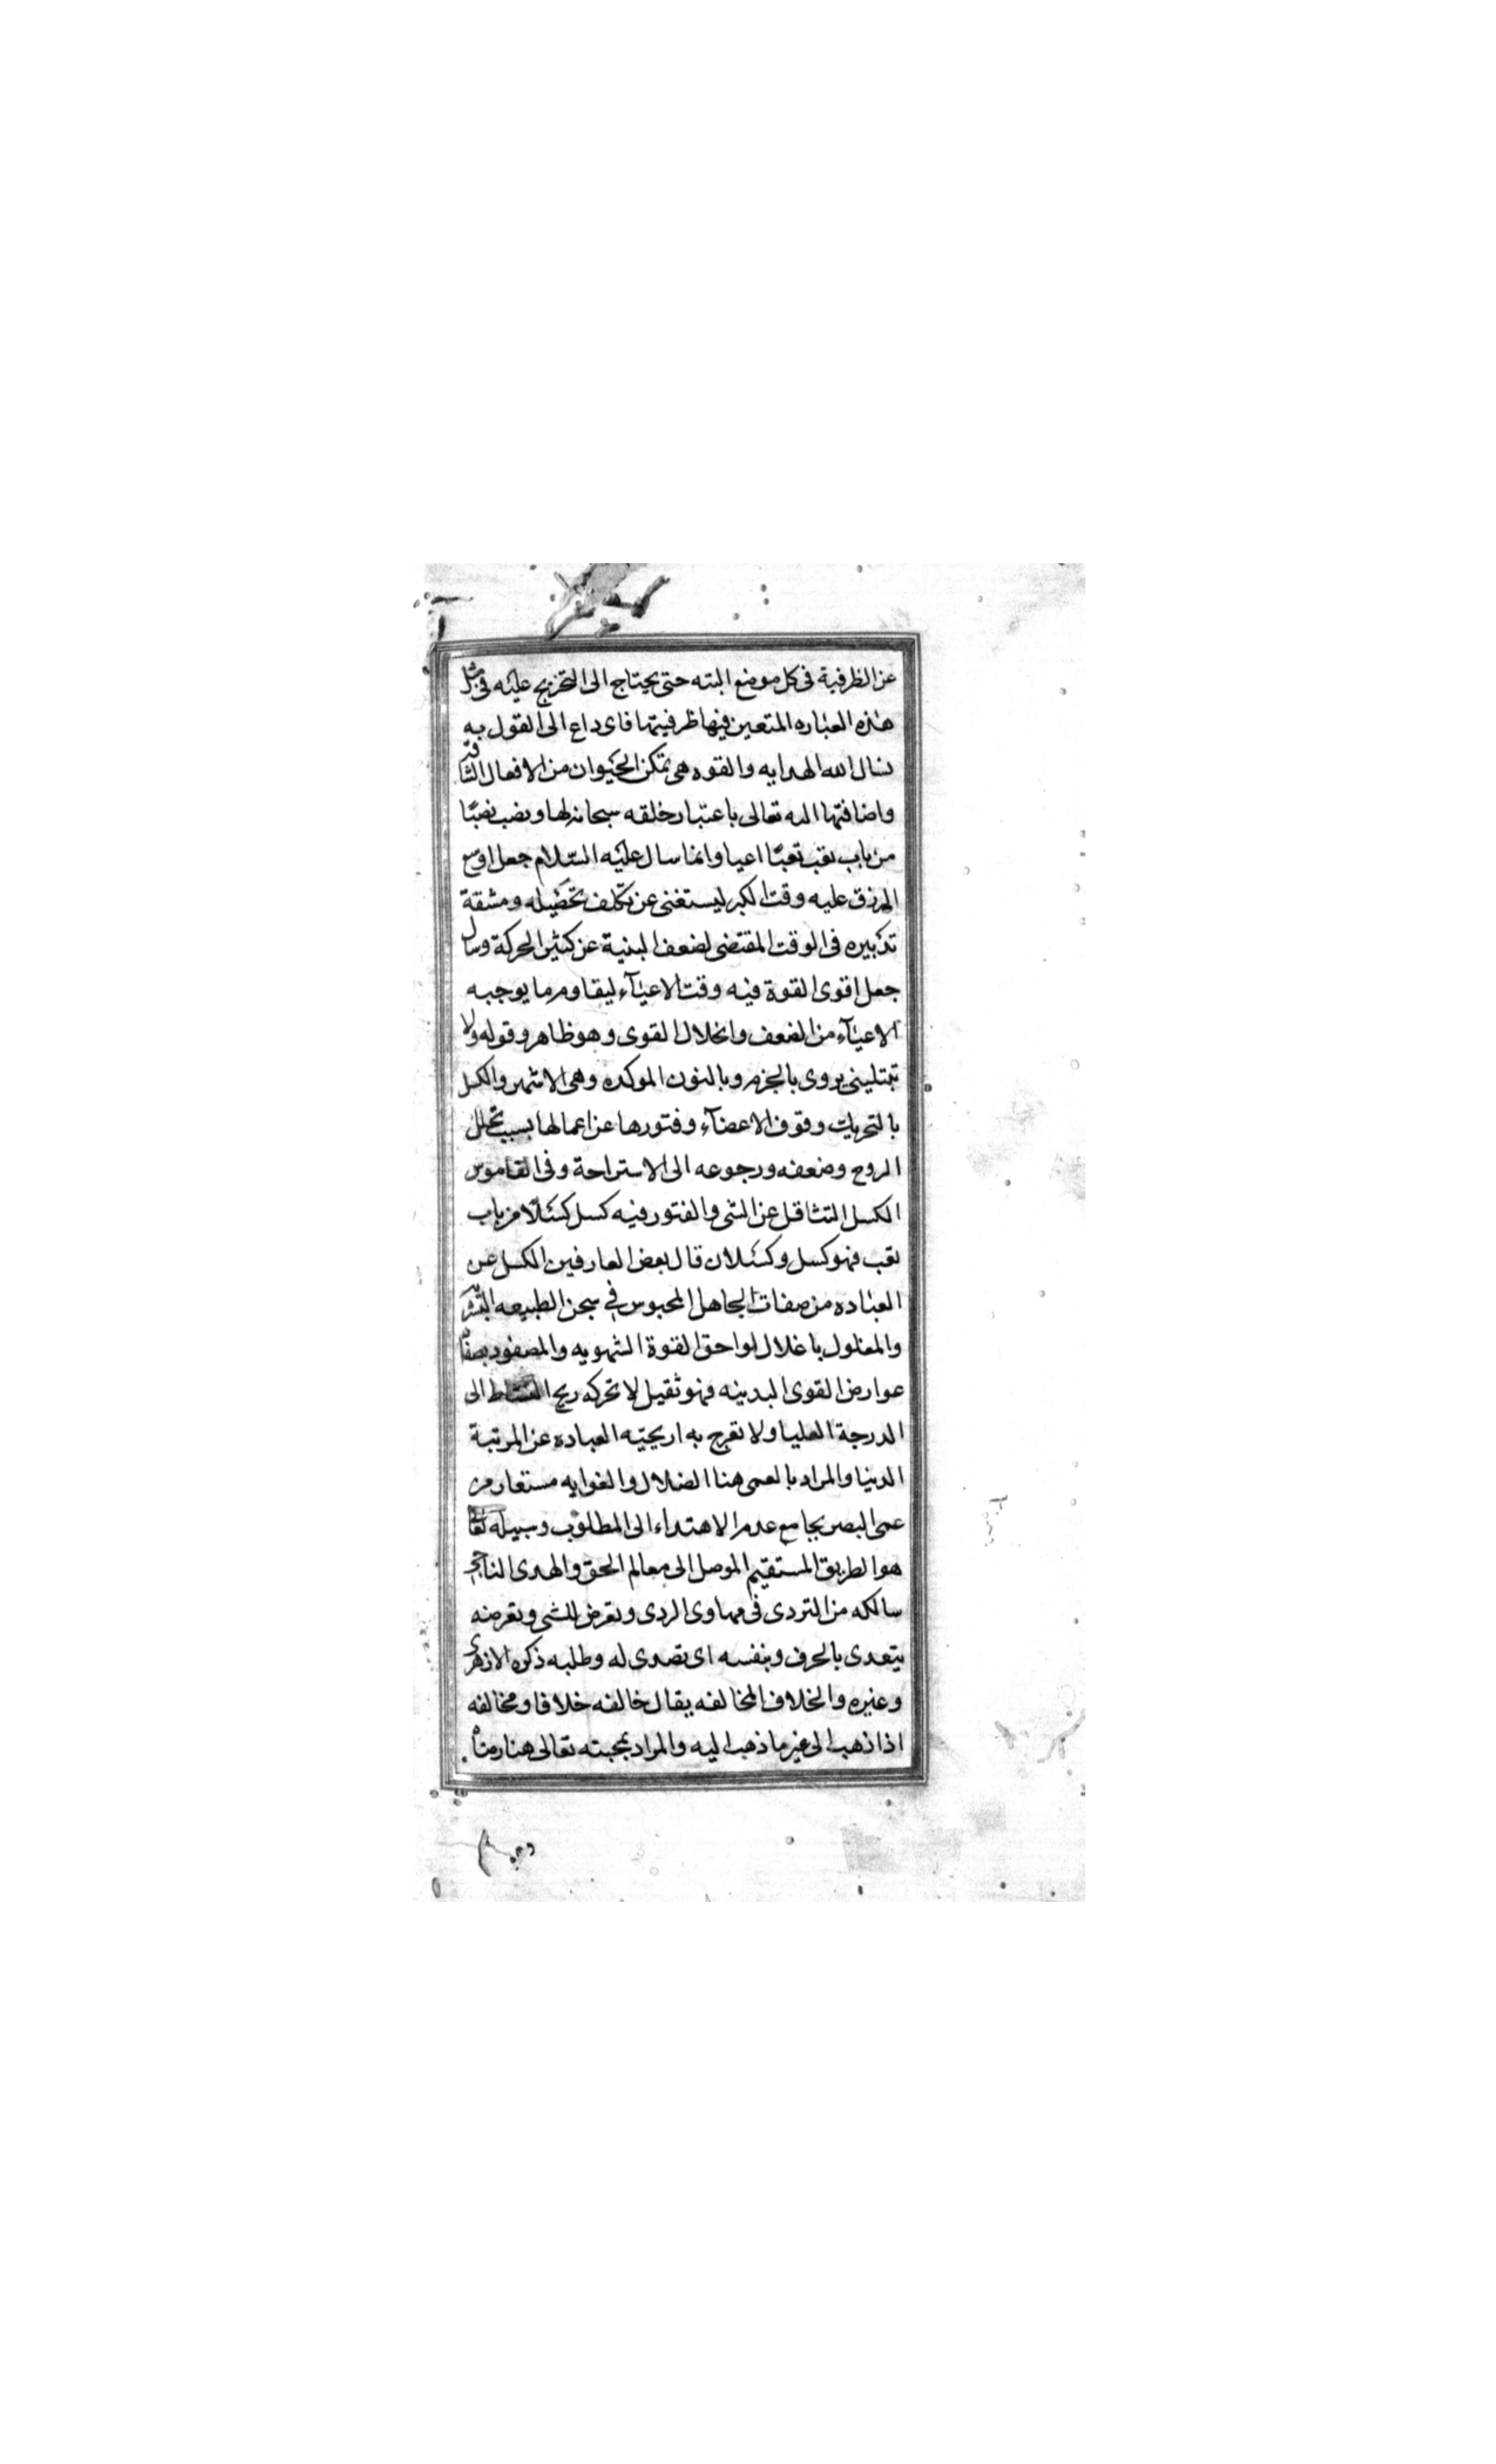 عن الظرفية فى كل موضع البته حتى يحتاج الى التخريج عليه فى مثل
هذه العباره المتعين فيها ظرفيتها فاى داع الى القول به
نسال الله الهدايه والقوه هى تمكن الحيوان من الافعال الشاقه
واضافتها اليه تعالى باعتبار خلقه سبحانه لها ونصب نصبًا
من باب تعب تعبًا اعيا وانما سال عليه السّلام جعل اوسع
الرزق عليه وقت الكبر ليستغنى عن تكلف تحصيله ومشقة
تدبيره فى الوقت المقتضى لضعف البنية عن كثير الحركة وسال
جعل اقوى القوة فيه وقت الاعيآء ليقاوم ما يوجبه
الاعيآء من الضعف وانحلال القوى وهو ظاهر وقوله ولا
تبتلينى يروى بالجزم وبالنون الموكده وهى الاشهر والكسل
بالتحريك وقوف الاعضآء وفتورها عن اعمالها بسبب تحلل
الروح وضعفه ورجوعه الى الاستراحة وفى القاموس
الكسل التثاقل عن الشى والفتور فيه كسل كسلًا من باب
تعب فهو كسل وكسلان قال بعض العارفين الكسل عن
العباده من صفات الجاهل المحبوس فى سجن الطبيعه البشريه
والمغلول باغلال لواحق القوة الشهويه والمصفود بصفاد
عوارض القوى البدنيه فهو ثقيل لا تحركه ريح النشاط الى
الدرجة العليا ولا تعرج به اريحيّه العباده عن المرتبة
الدنيا والمراد بالعمى هنا الضلال والغوايه مستعار من
عمى البصر بجامع عدم الاهتداء الى المطلوب وسبيله تعالى
هو الطريق المستقيم الموصل الى معالم الحق والهدى الناجى
سالكه من التردى فى مهاوى الردى وتعرض للشى وتعرضه
يتعدى بالحرف وبنفسه اى تصدى له وطلبه ذكره الازهرى
وغيره والخلاف المخالفه يقال خالفه خلافا ومخالفه
اذا ذهب الى غير ما ذهب اليه والمراد بمحبته تعالى هنا رضاه